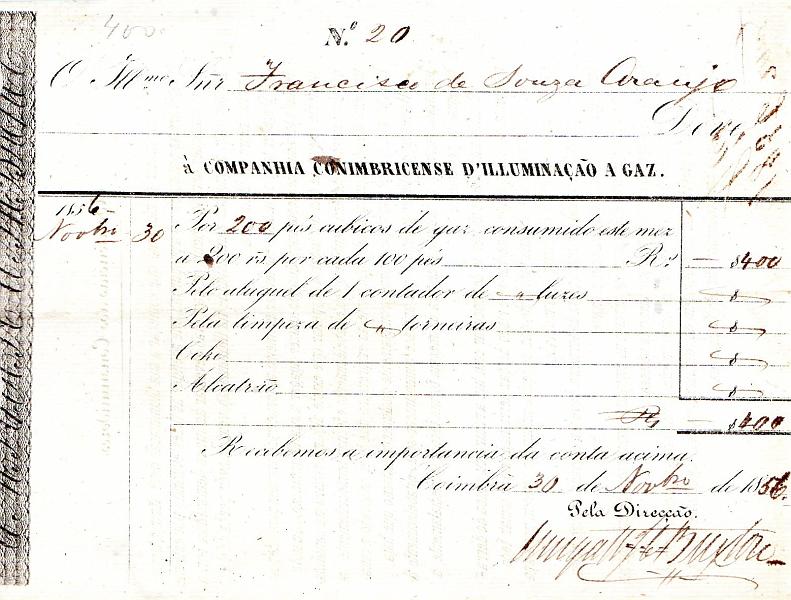 400
N.º 20
O Illmo Snr Francisco de Souza Araujo
Deve
à COMPANHIA CONIMBRICENSE D'ILLUMINAÇÃO A GAZ.
1856
Novbro 30 Por 200 pés cubicos de gaz consumido este mez
a 200 rs per cada 100 pés Rs — $400
Pelo aluguel de 1 contador de " luzes $
Pela limpeza de " torneiras $
Coke $
Alcatrão $
Rs — $400
Recebemos a importancia da conta acima.
Coimbra 30 de Novbro de 1856.
Pela Direcção.